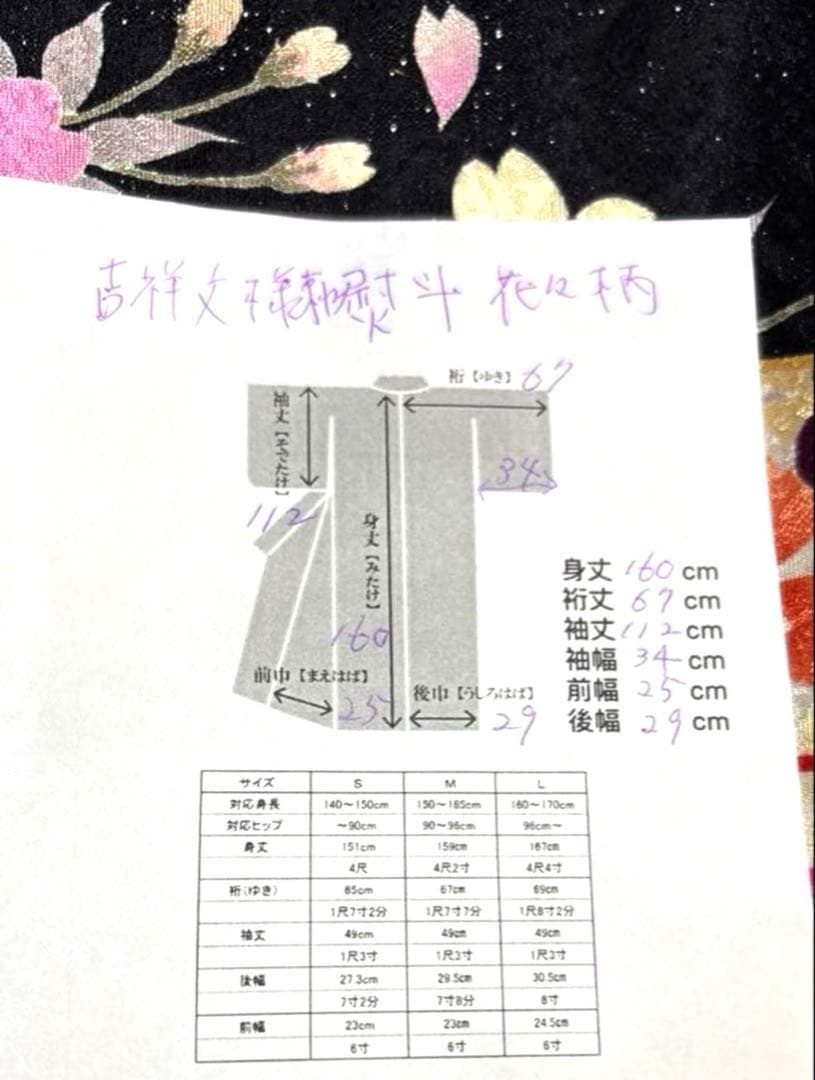 吉祥文様 熨斗 花柄
裄【ゆき】67
袖丈【そでたけ】
34
112
身丈【みたけ】
160
前巾【まえはば】
25
後巾【うしろはば】
29
身丈 160 cm
裄丈 67 cm
袖丈 112 cm
袖幅 34 cm
前幅 25 cm
後幅 29 cm
サイズ S M L
対応身長 140～150cm 150～165cm 160～170cm
対応ヒップ ～90cm 90～96cm 96cm～
身丈 151cm 159cm 167cm
4尺 4尺2寸 4尺4寸
裄(ゆき) 65cm 67cm 69cm
1尺7寸2分 1尺7寸7分 1尺8寸2分
袖丈 49cm 49cm 49cm
1尺3寸 1尺3寸 1尺3寸
後幅 27.3cm 29.5cm 30.5cm
7寸2分 7寸8分 8寸
前幅 23cm 23cm 24.5cm
6寸 6寸 6寸